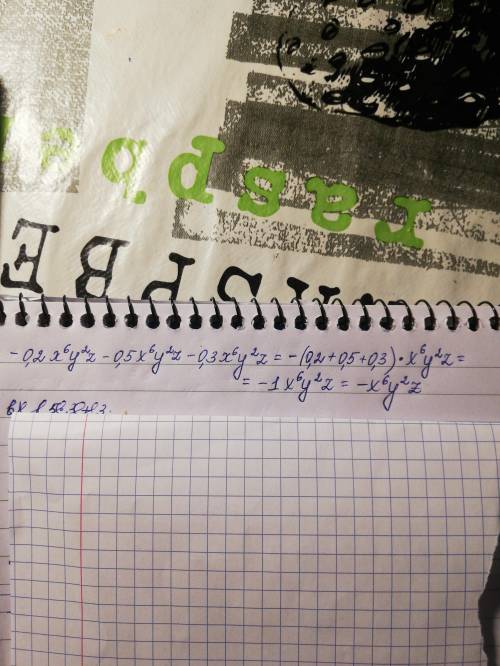 raspbe
- 0,2x⁶y²z - 0,5x⁶y²z - 0,3x⁶y²z = - (0,2 + 0,5 + 0,3) · x⁶y²z =
= - 1x⁶y²z = - x⁶y²z